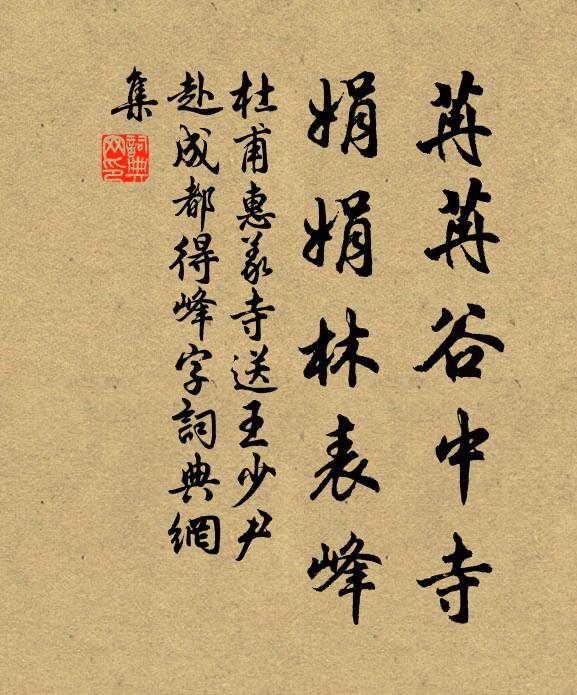 苒苒谷中寺
娟娟林表峰
杜甫惠義寺送王少尹
赴成都得峰字詞典網
集
詞典網印